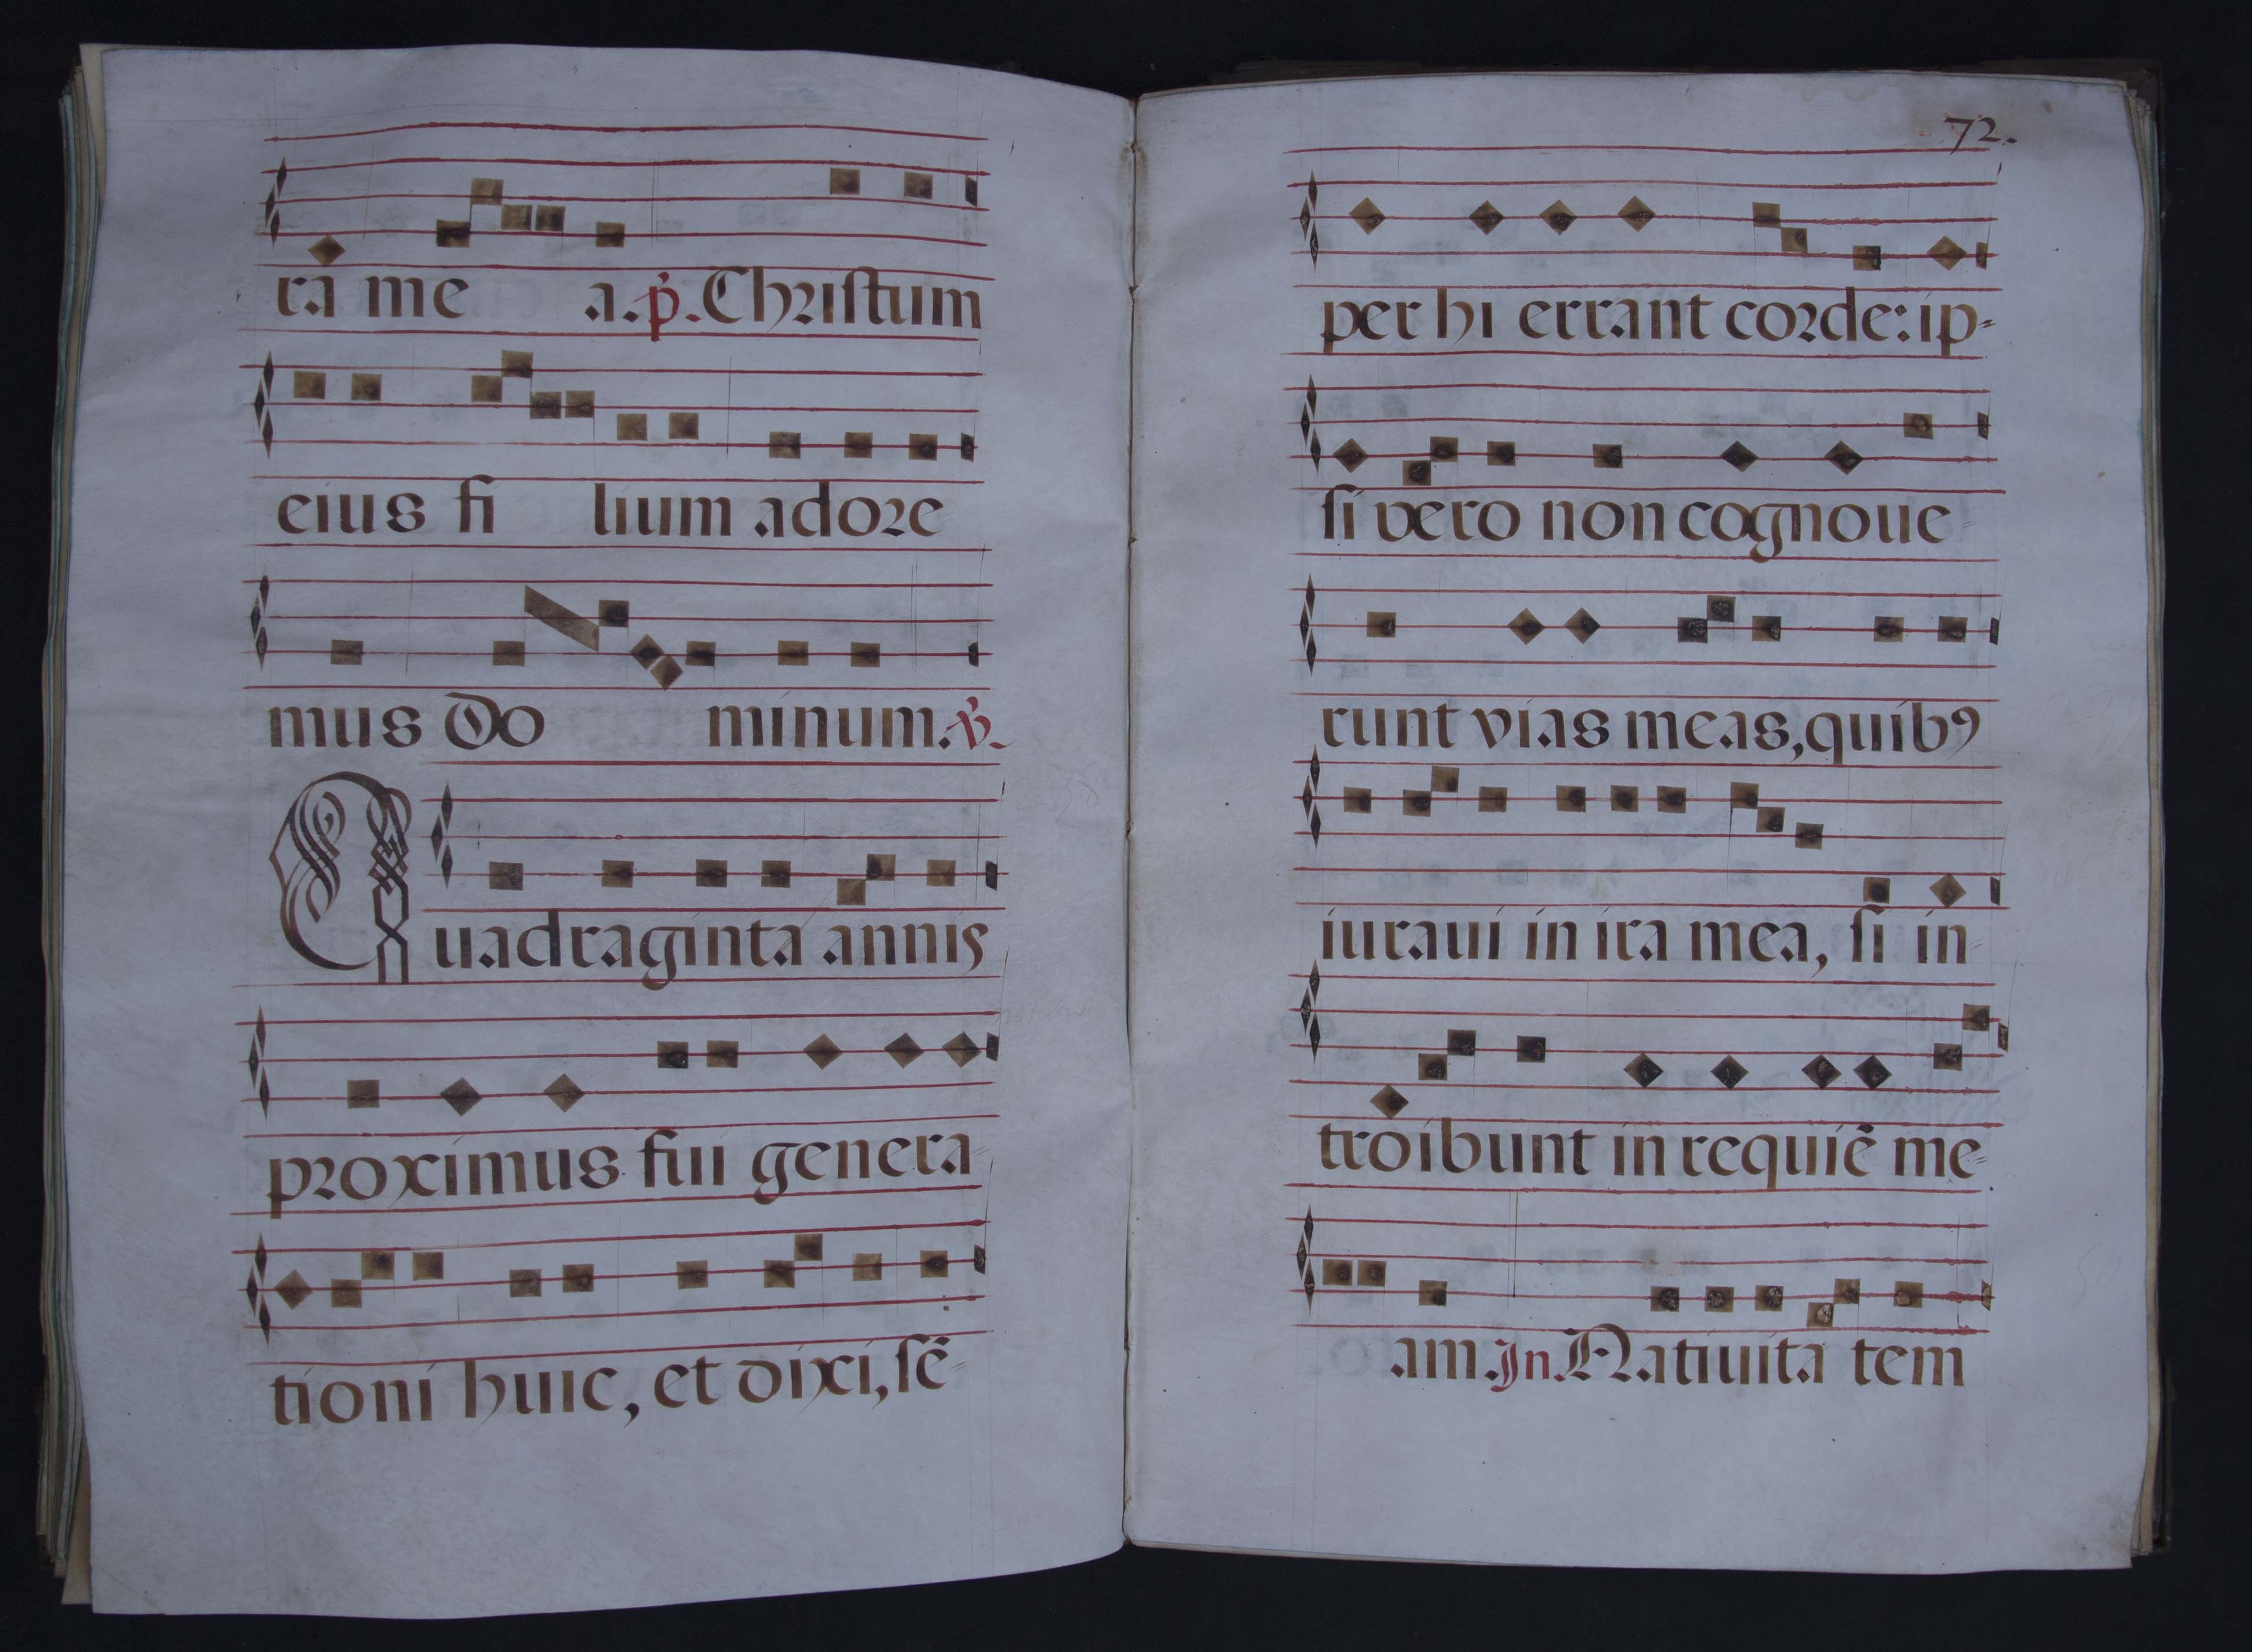 ra me a. p. Christum
eius fi lium adore
mus Do minum. v.
Quadraginta annis
proximus fui genera-
tioni huic, et dixi, sẽ-
72.
per hi errant corde: ip-
si vero non cognoue-
runt vias meas, quibꝰ
iuraui in ira mea, si in-
troibunt in requiẽ me-
am. In. Natiuita tem